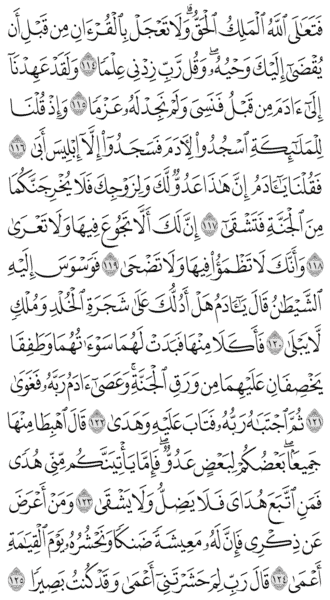 فَتَعَـٰلَى ٱللَّهُ ٱلْمَلِكُ ٱلْحَقُّ ۗ وَلَا تَعْجَلْ بِٱلْقُرْءَانِ مِن قَبْلِ أَن
يُقْضَىٰٓ إِلَيْكَ وَحْيُهُۥ ۖ وَقُل رَّبِّ زِدْنِى عِلْمًا ١١٤ وَلَقَدْ عَهِدْنَآ
إِلَىٰٓ ءَادَمَ مِن قَبْلُ فَنَسِىَ وَلَمْ نَجِدْ لَهُۥ عَزْمًا ١١٥ وَإِذْ قُلْنَا
لِلْمَلَـٰٓئِكَةِ ٱسْجُدُوا۟ لِـَٔادَمَ فَسَجَدُوٓا۟ إِلَّآ إِبْلِيسَ أَبَىٰ ١١٦
فَقُلْنَا يَـٰٓـَٔادَمُ إِنَّ هَـٰذَا عَدُوٌّ لَّكَ وَلِزَوْجِكَ فَلَا يُخْرِجَنَّكُمَا
مِنَ ٱلْجَنَّةِ فَتَشْقَىٰٓ ١١٧ إِنَّ لَكَ أَلَّا تَجُوعَ فِيهَا وَلَا تَعْرَىٰ
١١٨ وَأَنَّكَ لَا تَظْمَؤُا۟ فِيهَا وَلَا تَضْحَىٰ ١١٩ فَوَسْوَسَ إِلَيْهِ
ٱلشَّيْطَـٰنُ قَالَ يَـٰٓـَٔادَمُ هَلْ أَدُلُّكَ عَلَىٰ شَجَرَةِ ٱلْخُلْدِ وَمُلْكٍ
لَّا يَبْلَىٰ ١٢٠ فَأَكَلَا مِنْهَا فَبَدَتْ لَهُمَا سَوْءَٰتُهُمَا وَطَفِقَا
يَخْصِفَانِ عَلَيْهِمَا مِن وَرَقِ ٱلْجَنَّةِ ۚ وَعَصَىٰٓ ءَادَمُ رَبَّهُۥ فَغَوَىٰ
١٢١ ثُمَّ ٱجْتَبَـٰهُ رَبُّهُۥ فَتَابَ عَلَيْهِ وَهَدَىٰ ١٢٢ قَالَ ٱهْبِطَا مِنْهَا
جَمِيعًۢا ۖ بَعْضُكُمْ لِبَعْضٍ عَدُوٌّ ۖ فَإِمَّا يَأْتِيَنَّكُم مِّنِّى هُدًى
فَمَنِ ٱتَّبَعَ هُدَاىَ فَلَا يَضِلُّ وَلَا يَشْقَىٰ ١٢٣ وَمَنْ أَعْرَضَ
عَن ذِكْرِى فَإِنَّ لَهُۥ مَعِيشَةً ضَنكًا وَنَحْشُرُهُۥ يَوْمَ ٱلْقِيَـٰمَةِ
أَعْمَىٰ ١٢٤ قَالَ رَبِّ لِمَ حَشَرْتَنِىٓ أَعْمَىٰ وَقَدْ كُنتُ بَصِيرًا ١٢٥